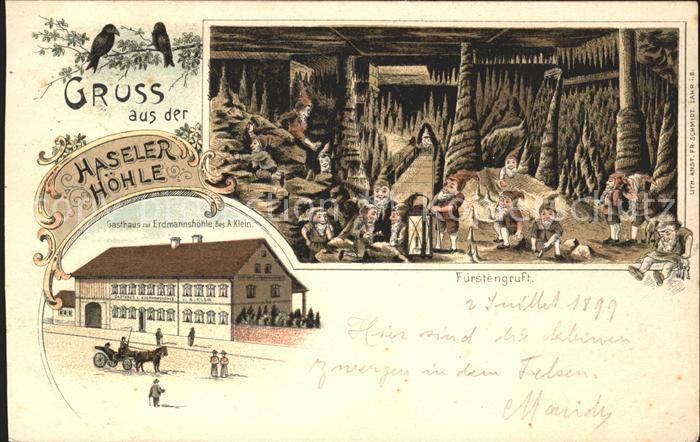 GRUSS
aus der
HASELER
HÖHLE
Gasthaus zur Erdmannshöhle, Bes. A. Klein.
GASTHAUS Z. ERDMANNSHÖHLE v. A. KLEIN
LITH. ANST. FR. SCHMIDT, LAHR i/B.
Fürstengruft.
2 Juillet 1899
Hier sind die kleinen
Zwergen in dem Felsen.